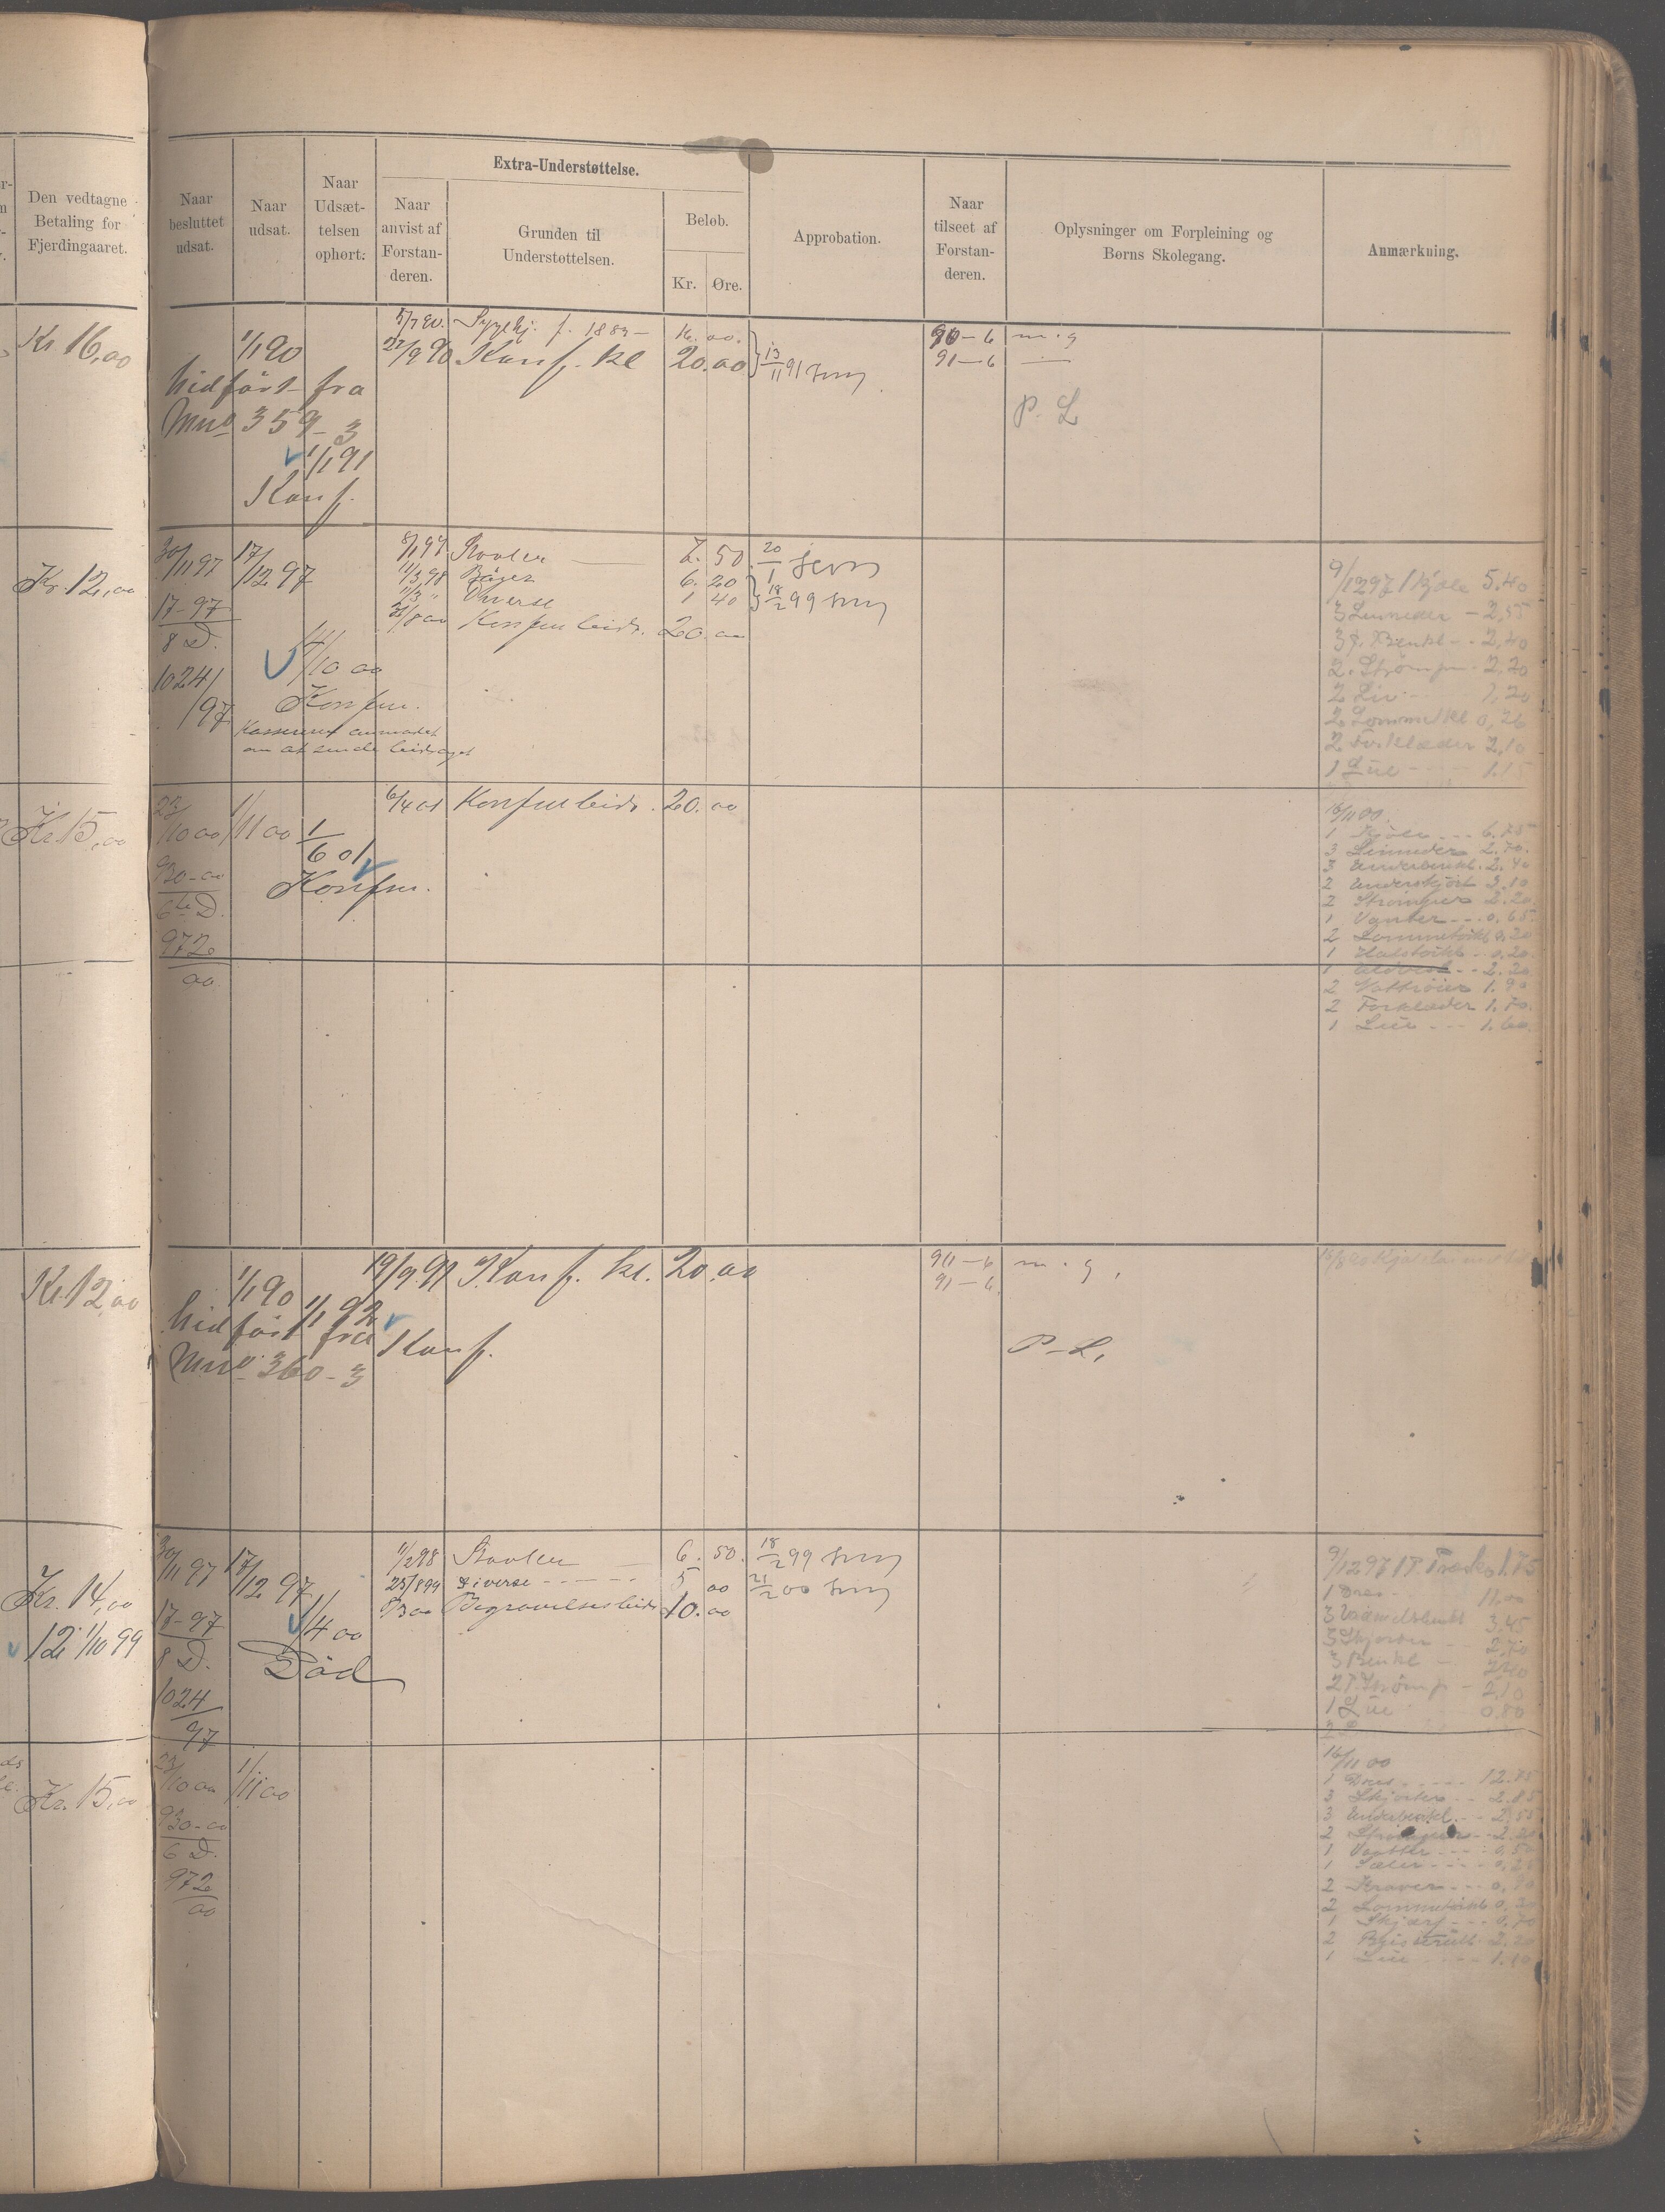 Den vedtagne
Betaling for
Fjerdingaaret.
Naar
besluttet
udsat.
Naar
udsat.
Naar
Udsæt-
telsen
ophørt.
Extra-Understøttelse.
Naar
anvist af
Forstan-
deren.
Grunden til
Understøttelsen.
Beløb.
Kr. Øre.
Approbation.
Naar
tilseet af
Forstan-
deren.
Oplysninger om Forpleining og
Børns Skolegang.
Anmærkning.
Kr 16,00
1/1 90
hidført fra
Mno 359-3
1/1 91
Konf.
22/9 90 Konf. kl 20.00
13/11 91
90-6 m.g
91-6 —
P. L
Kr. 12,00
30/11 97 17/12 97
17-97
8 D.
1024/97
4/10 00
Konfm.
om at sende bidraget
Skoler 7.50
11/3 98 Bøger 6.20
11/3 " Diverse 1 40
Konfm bidr. 20.00
20/1
18/2 99
9/12 97 1 Kjole 5.40
3 Linneder - 2,55
3 p. Benkl - 2,40
2. Strømper - 2,20
2 Liv 1,20
2 Lommetkl 0,26
2 Forklæder 2,10
1 Lue 1.15
Kr 15,00
23/10 00 1/11 00
930-00
6te D.
972/00
1/6 01
Konfm.
6/4 01 Konfm bidr. 20.00
16/11 00.
1 Kjole - - - 6.75
3 Linneder 2.70.
3 Underbenkl. 2.40
2 Underskjørt 3.10
2 Strømper 2.20
1 Vanter - - - 0.65
2 Lommetørkl 0.20
1 Halstørkl - - 0.20
1 - - 2.20
2 Nattrøier 1.90
2 Forklæder 1.70.
1 Lue - - - 1.60
Kr 12,00
1/1 90
hidført fra
Mno. 360-3
1/1 92
Konf.
19/9 91 Konf. kl. 20.00
90-6 m.g.
91-6
P-L.
Kr. 14,00
12, 1/10 99
30/11 97 17/12 97
17-97
8 D.
1024/97
1/4 00
Død
11/2 98 Skoler 6.50.
25/8 99 Diverse - - - - 5 00
8/3 00 Begravelsesbidr 10.00
18/2 99
21/2 00
9/12 97 1 P Træsko 1.75
1 Dres - 11.00
3 Vadmelsbukt 3,45
3 Skjorter - - 2,70
3 Benkl - 2,40
2 P. Strømp - 2,10
1 Lue 0.80
Kr. 15,00
23/10 00 1/11 00
930-00
6 D.
972/00
16/11 00
1 Dres - - - - - 12.75
3 Skjorter - - 2.85
3 Underbenkl. - - 2.55
2 Strømper - - 2.20
1 Vanter - - - 0.50
1 Sæler - - -
2 Kraver - - -
2 Lommetørkl
1 Skjærf - - - 0.70
2 2.20
1 Lue - - - - 1.10